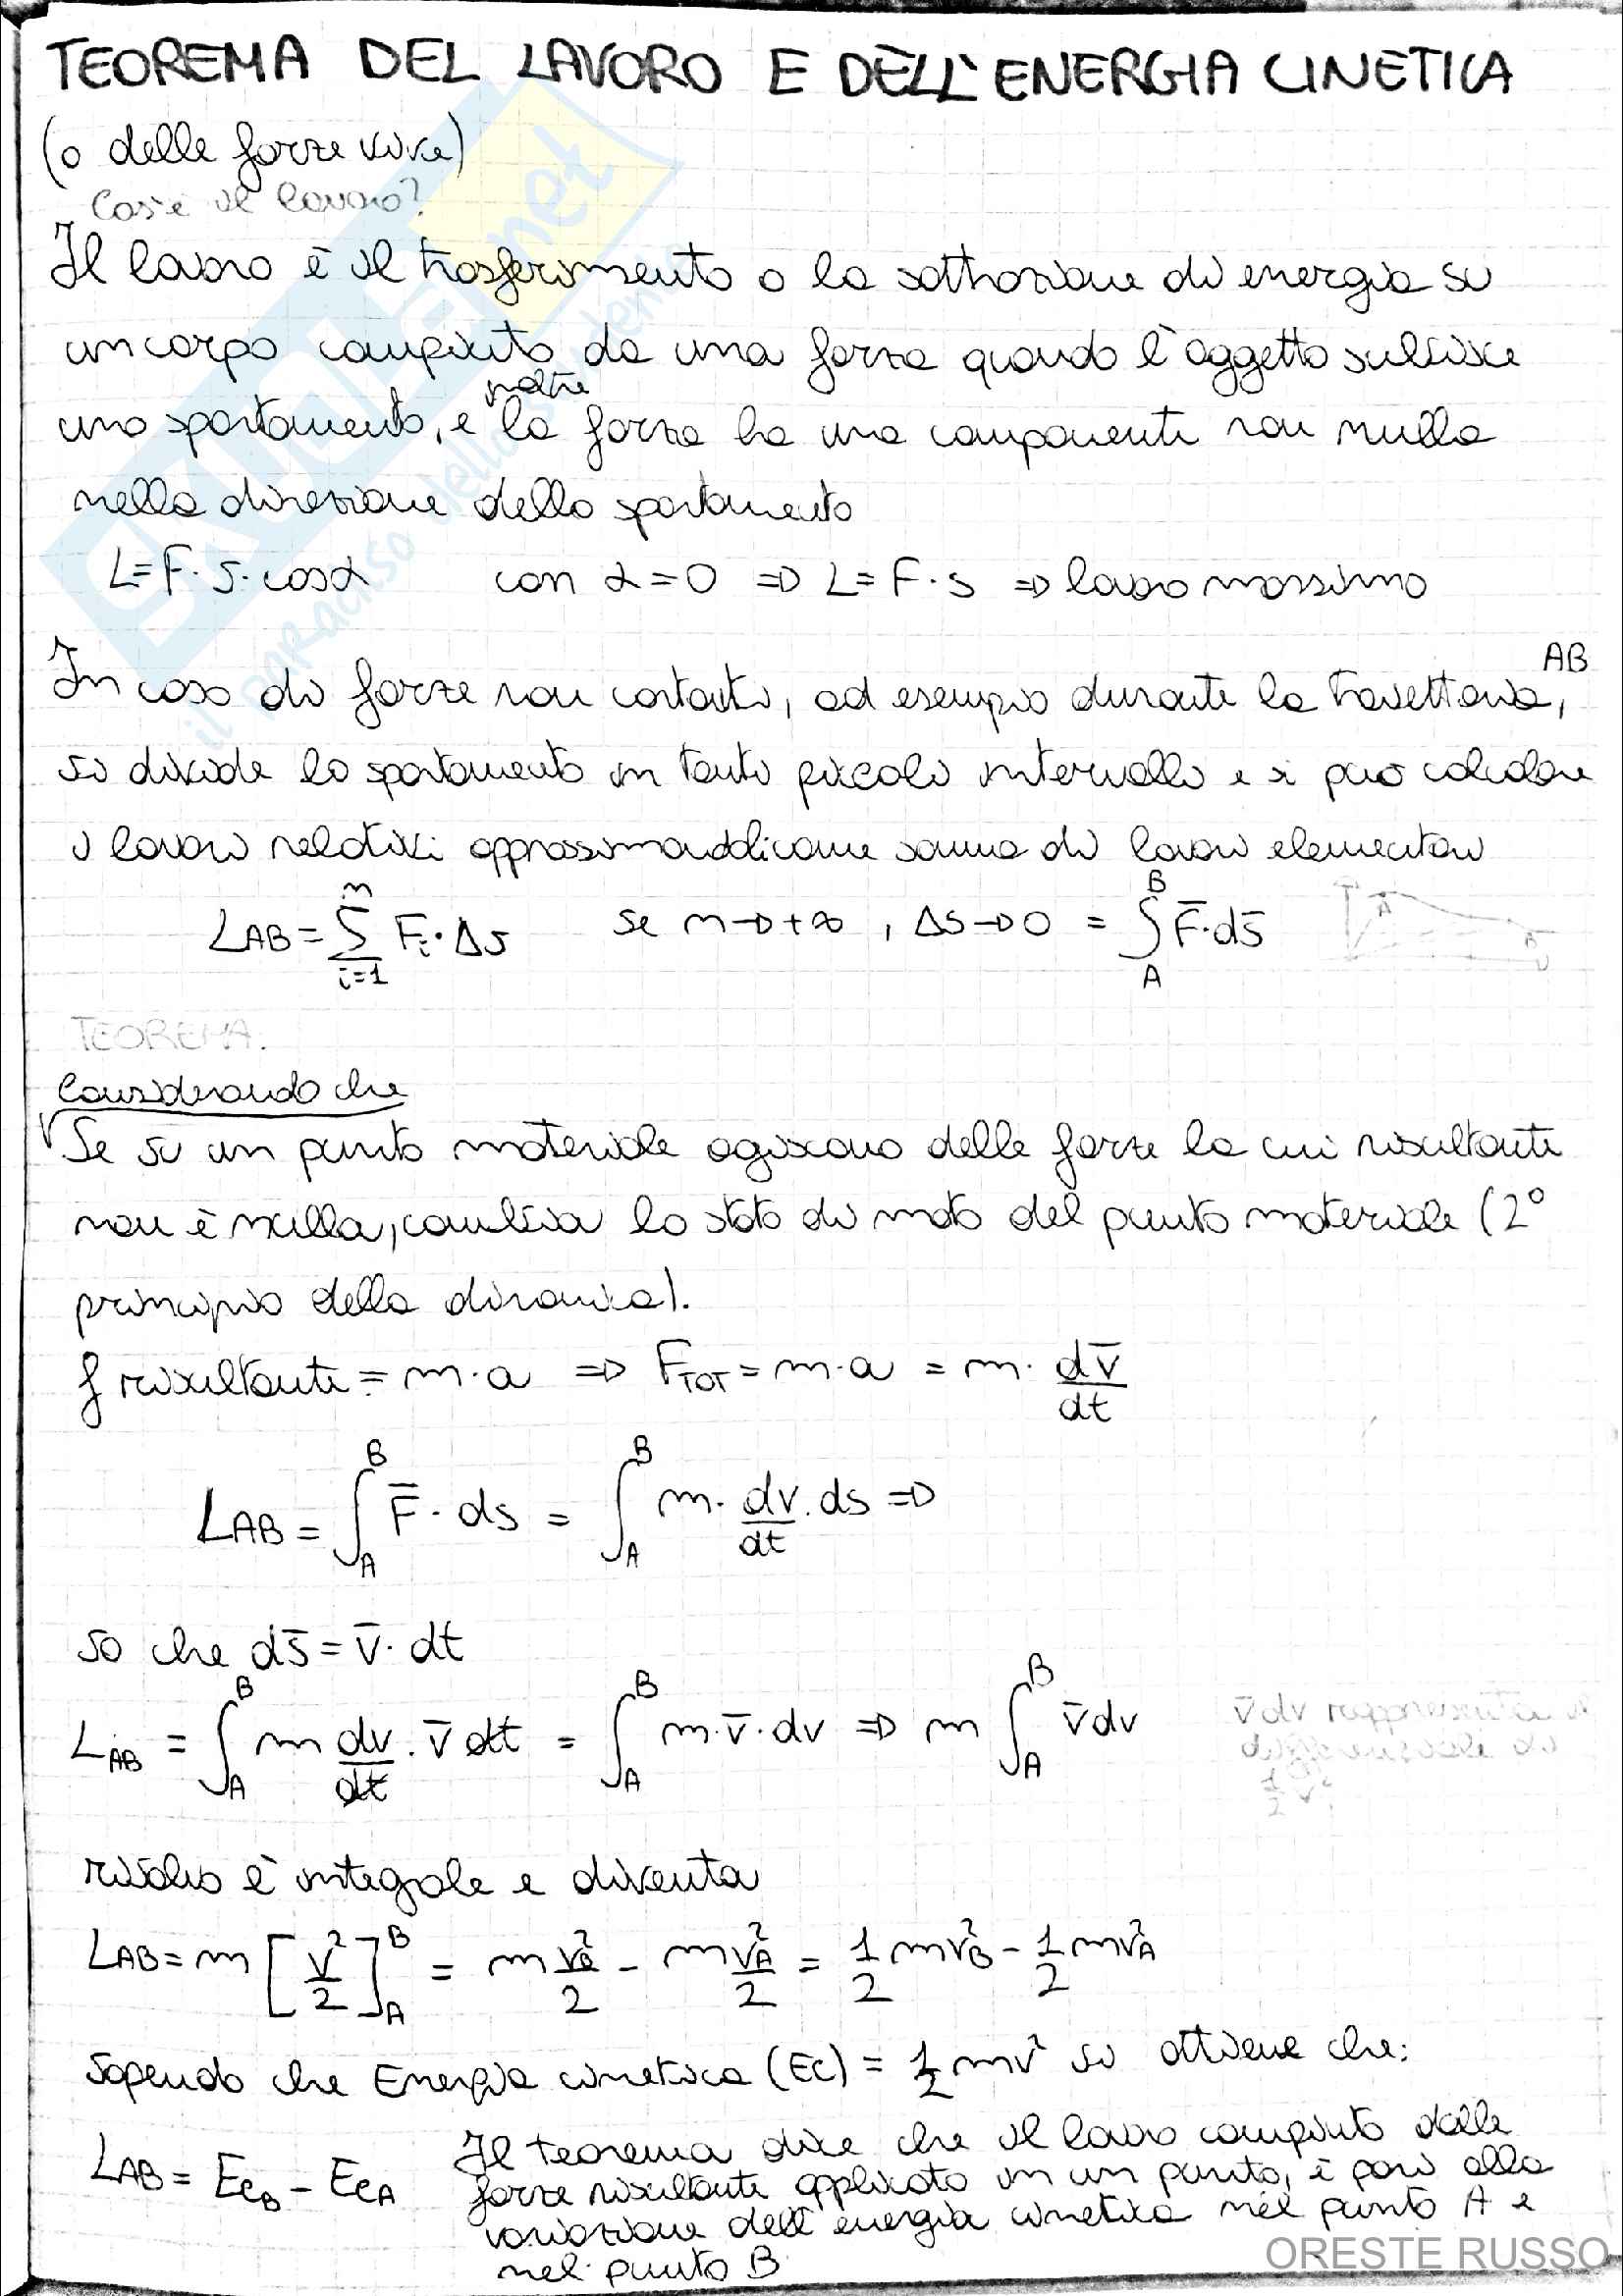 TEOREMA DEL LAVORO E DELL'ENERGIA CINETICA
(o delle forze vive)
Cos'è il lavoro?
Il lavoro è il trasferimento o la sottrazione di energia su
un corpo compiuto da una forza quando l'oggetto subisce
inoltre
uno spostamento, e la forza ha una componente non nulla
nella direzione dello spostamento
L=F·s·cosα con α=0 => L=F·s => lavoro massimo
AB
In caso di forze non costanti, ad esempio durante la traiettoria,
si divide lo spostamento in tanti piccoli intervalli e si può calcolare
i lavori relativi come somma di lavori elementari
L_AB = ∑_{i=1}^{n} F_i·Δs se n→+∞, Δs→0 = ∫_A^B F̄·ds̄
A B
TEOREMA.
Considerando che
Se su un punto materiale agiscono delle forze la cui risultante
non è nulla, cambia lo stato di moto del punto materiale (2°
principio della dinamica).
f risultante = m·a => F_TOT = m·a = m· dv̄/dt
L_AB = ∫_A^B F̄·ds = ∫_A^B m· dv/dt ·ds =>
so che ds̄ = v̄·dt
L_AB = ∫_A^B m dv/dt · v̄ dt = ∫_A^B m·v̄·dv => m ∫_A^B v̄dv
v̄dv rappresenta il
differenziale di
1/2 v²
risolvo l'integrale e diventa
L_AB = m [v²/2]_A^B = m v_B²/2 - m v_A²/2 = 1/2 mv_B² - 1/2 mv_A²
sapendo che Energia cinetica (Ec) = 1/2 mv² si ottiene che:
L_AB = Ec_B - Ec_A
Il teorema dice che il lavoro compiuto dalle
forze risultante applicato in un punto, è pari alla
variazione dell'energia cinetica nel punto A e
nel punto B
SKUOLA.net
il paradiso dello studente
ORESTE RUSSO